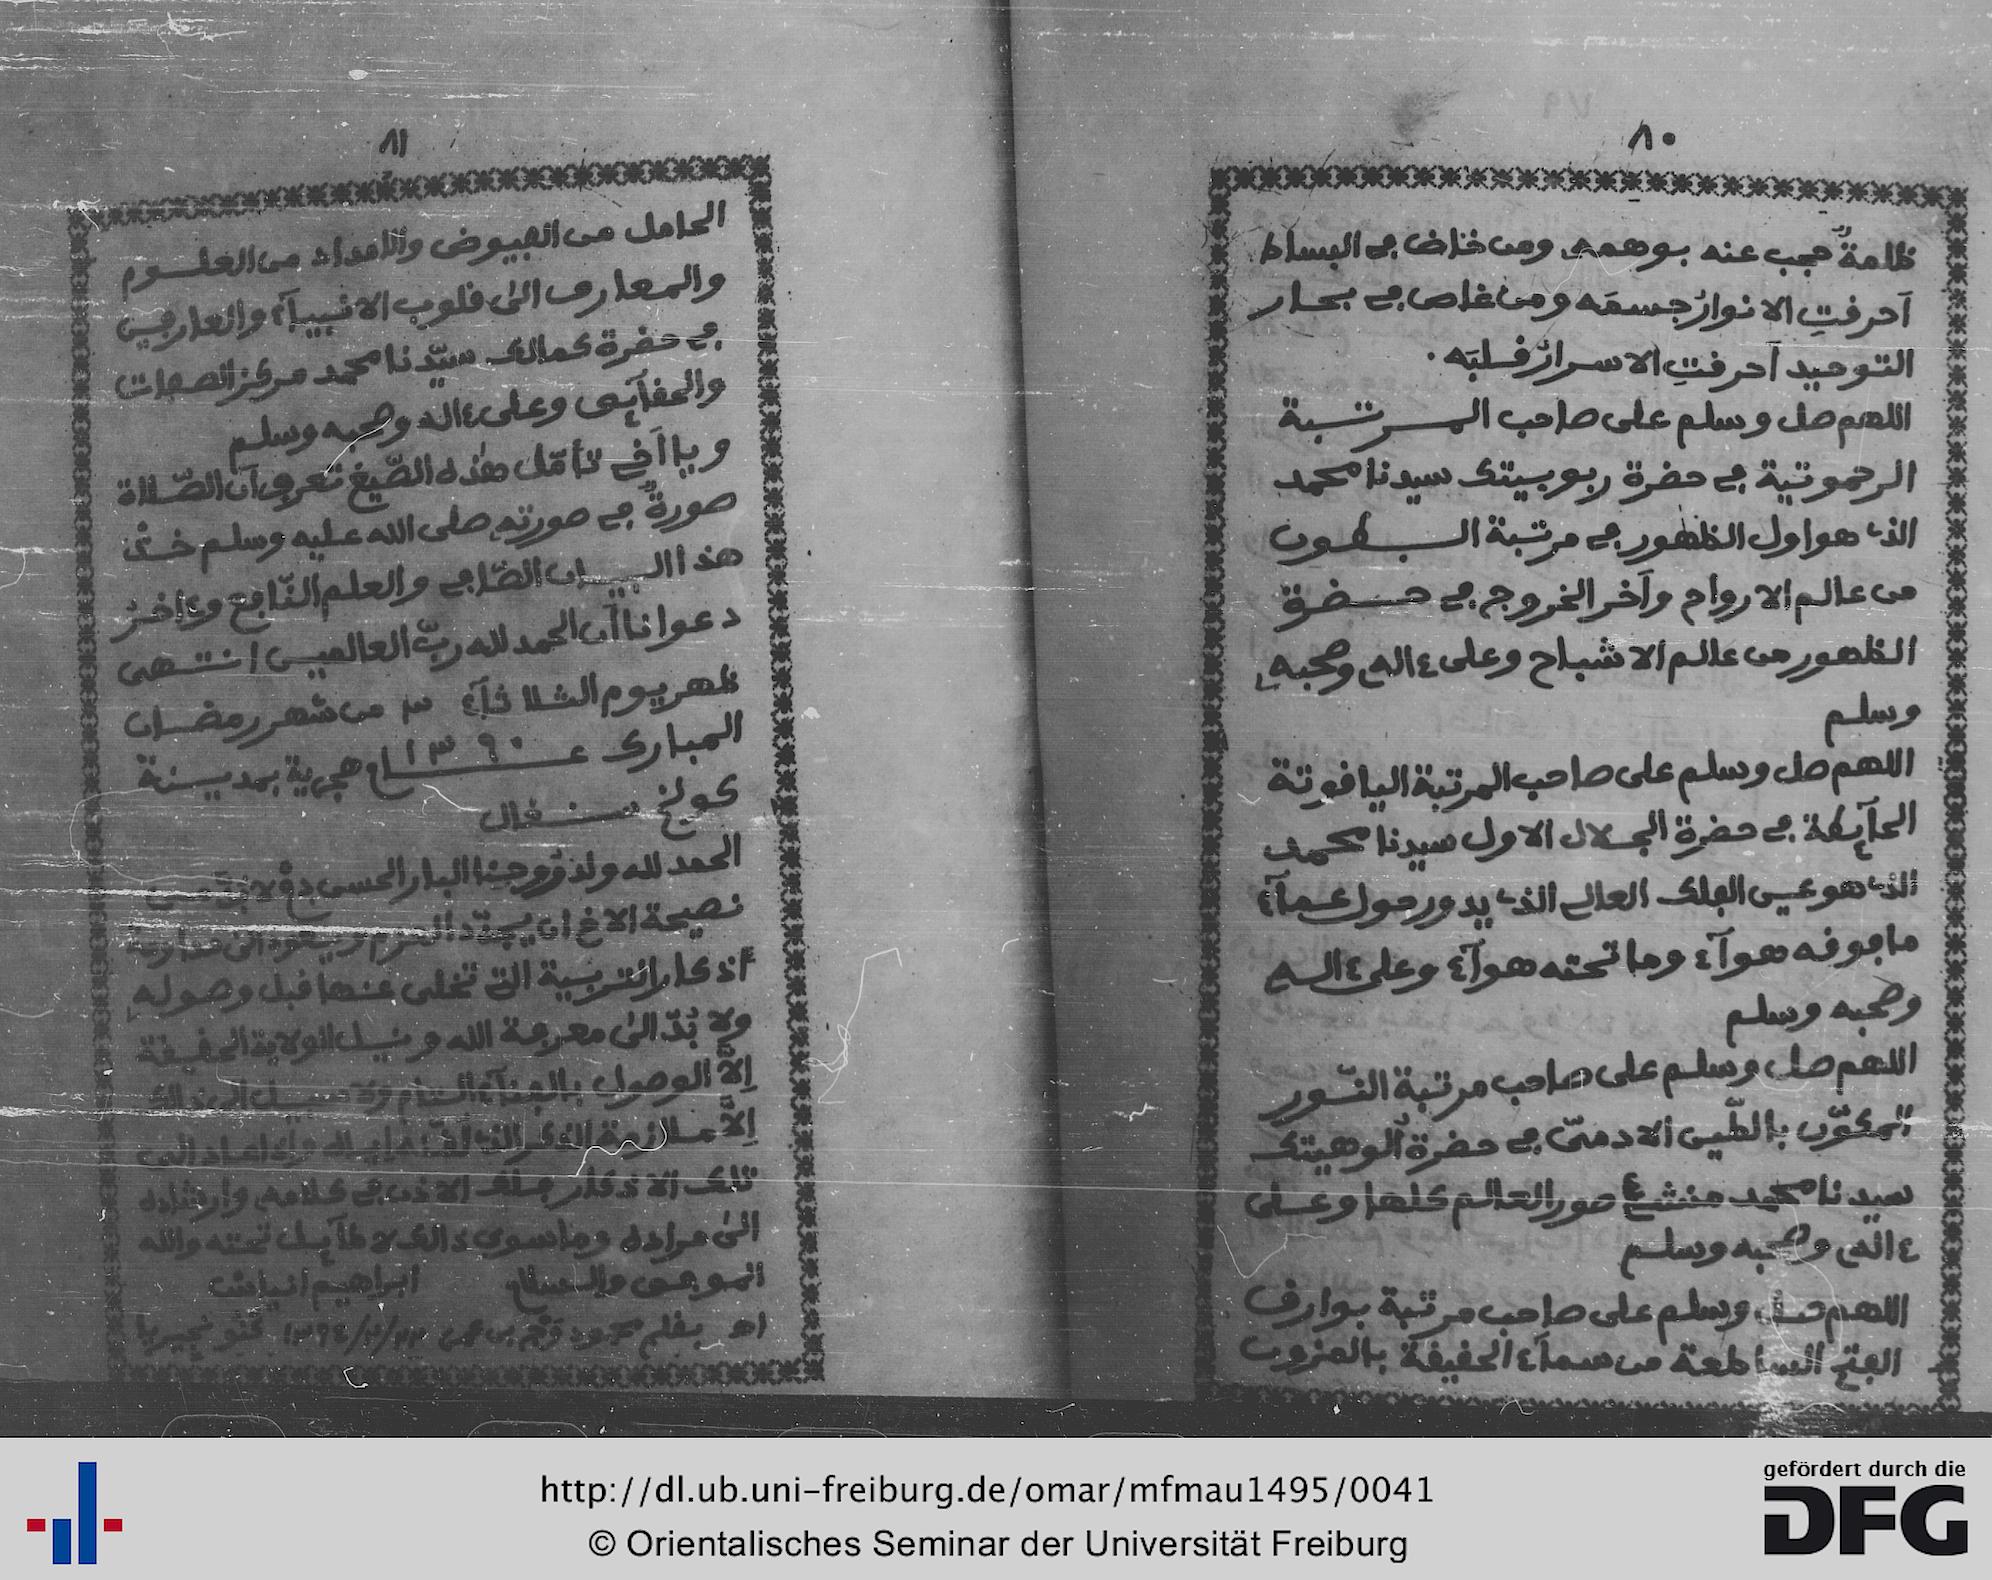 ٨٠
ظلمةٌ حجب عنه بوهمه ومن خاض في البساط
أحرقتِ الانوارُ جسمَه ومن غاص في بحار
التوحيد أحرقتِ الاسرارُ قلبَه .
اللهم صل وسلم على صاحب المرتبة
الرحموتية في حضرة ربوبيتك سيدنا محمد
الذى هو اول الظهور في مرتبة البطون
من عالم الارواح وآخر الخروج في حضرة
الظهور من عالم الاشباح وعلى ءاله وصحبه
وسلم
اللهم صل وسلم على صاحب المرتبة الياقوتة
الحآئطة في حضرة الجلال الاول سيدنا محمد
الذى هو عين الفلك العالى الذى يدور حول عمآء
ما فوقه هوآء وما تحته هوآء وعلى ءاله
وصحبه وسلم
اللهم صل وسلم على صاحب مرتبة النّور
المكوّن بالطّين الادمىّ في حضرة ألوهيتك
سيدنا محمد منشئ صور العالم كلها وعلى
ءاله وصحبه وسلم
اللهم صل وسلم على صاحب مرتبة بوارق
الفتح الساطعة من سمآء الحقيقة بالمزون
٨١
الحامل من الفيوض والامداد من العلوم
والمعارف الىٰ قلوب الانبيآء والعارفين
في حضرة كمالك سيّدنا محمد مركز الصفات
والحقآئق وعلى ءاله وصحبه وسلم
ويا أخي تأمّل هٰذه الصّيغ تعرف أن الصّلاة
صورةٌ في صورته صلى الله عليه وسلم خذ
هذا البيان الصّافي والعلم النّافع وءاخر
دعوانا أن الحمد لله ربّ العالمين انتهى
ظهر يوم الثلاثآء ٣ من شهر رمضان
المبارك عام ١٣٩٠ هجرية بمدينة
كولخ سنغال
الحمد لله البار الحسن
نصيحة الاخ ان يجدّد العزم ويعود الى
أذكار التربية التي تخلى عنها قبل وصوله
ولا بُدّ الىٰ معرفة الله ونيل الولاية الحقيقة
إلاّ الوصول بالفنآء التام ولا سبيل الى ذالك
إلاّ ملازمة الذكر الذى لقّنه
تلك الاذكار الاذن في كلامه وارشاده
الىٰ مراده وما سوى ذالك لا طآئل تحته والله
الموفق والسلام ابراهيم انياس
اهـ بقلم محمود ١٣٩٤ كنو نيجيريا
http://dl.ub.uni-freiburg.de/omar/mfmau1495/0041
© Orientalisches Seminar der Universität Freiburg
gefördert durch die
DFG